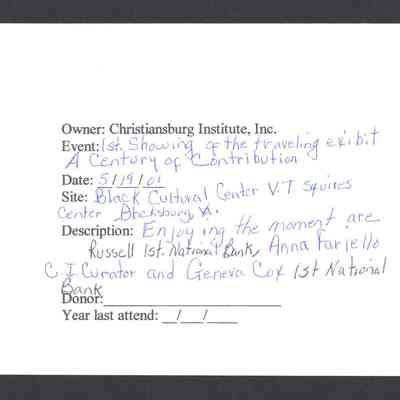 Owner: Christiansburg Institute, Inc.
Event: 1st. Showing of the traveling exibit
A Century of Contribution
Date: 5/19/01
Site: Black Cultural Center V.T. Squires
Center Blacksburg, Va.
Description: Enjoying the moment are
Russell 1st. National Bank, Anna Fariello
C.I Curator and Geneva Cox 1st National
Bank
Donor:
Year last attend: __/__/__